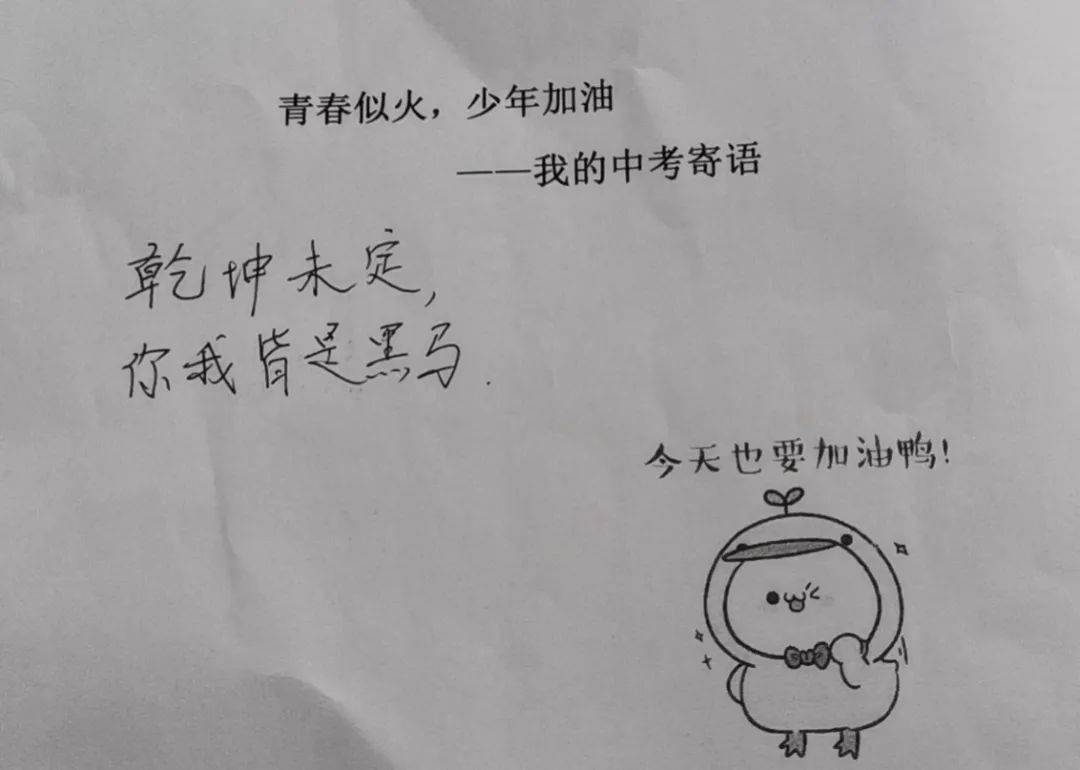 青春似火，少年加油
——我的中考寄语
乾坤未定，
你我皆是黑马.
今天也要加油鸭！